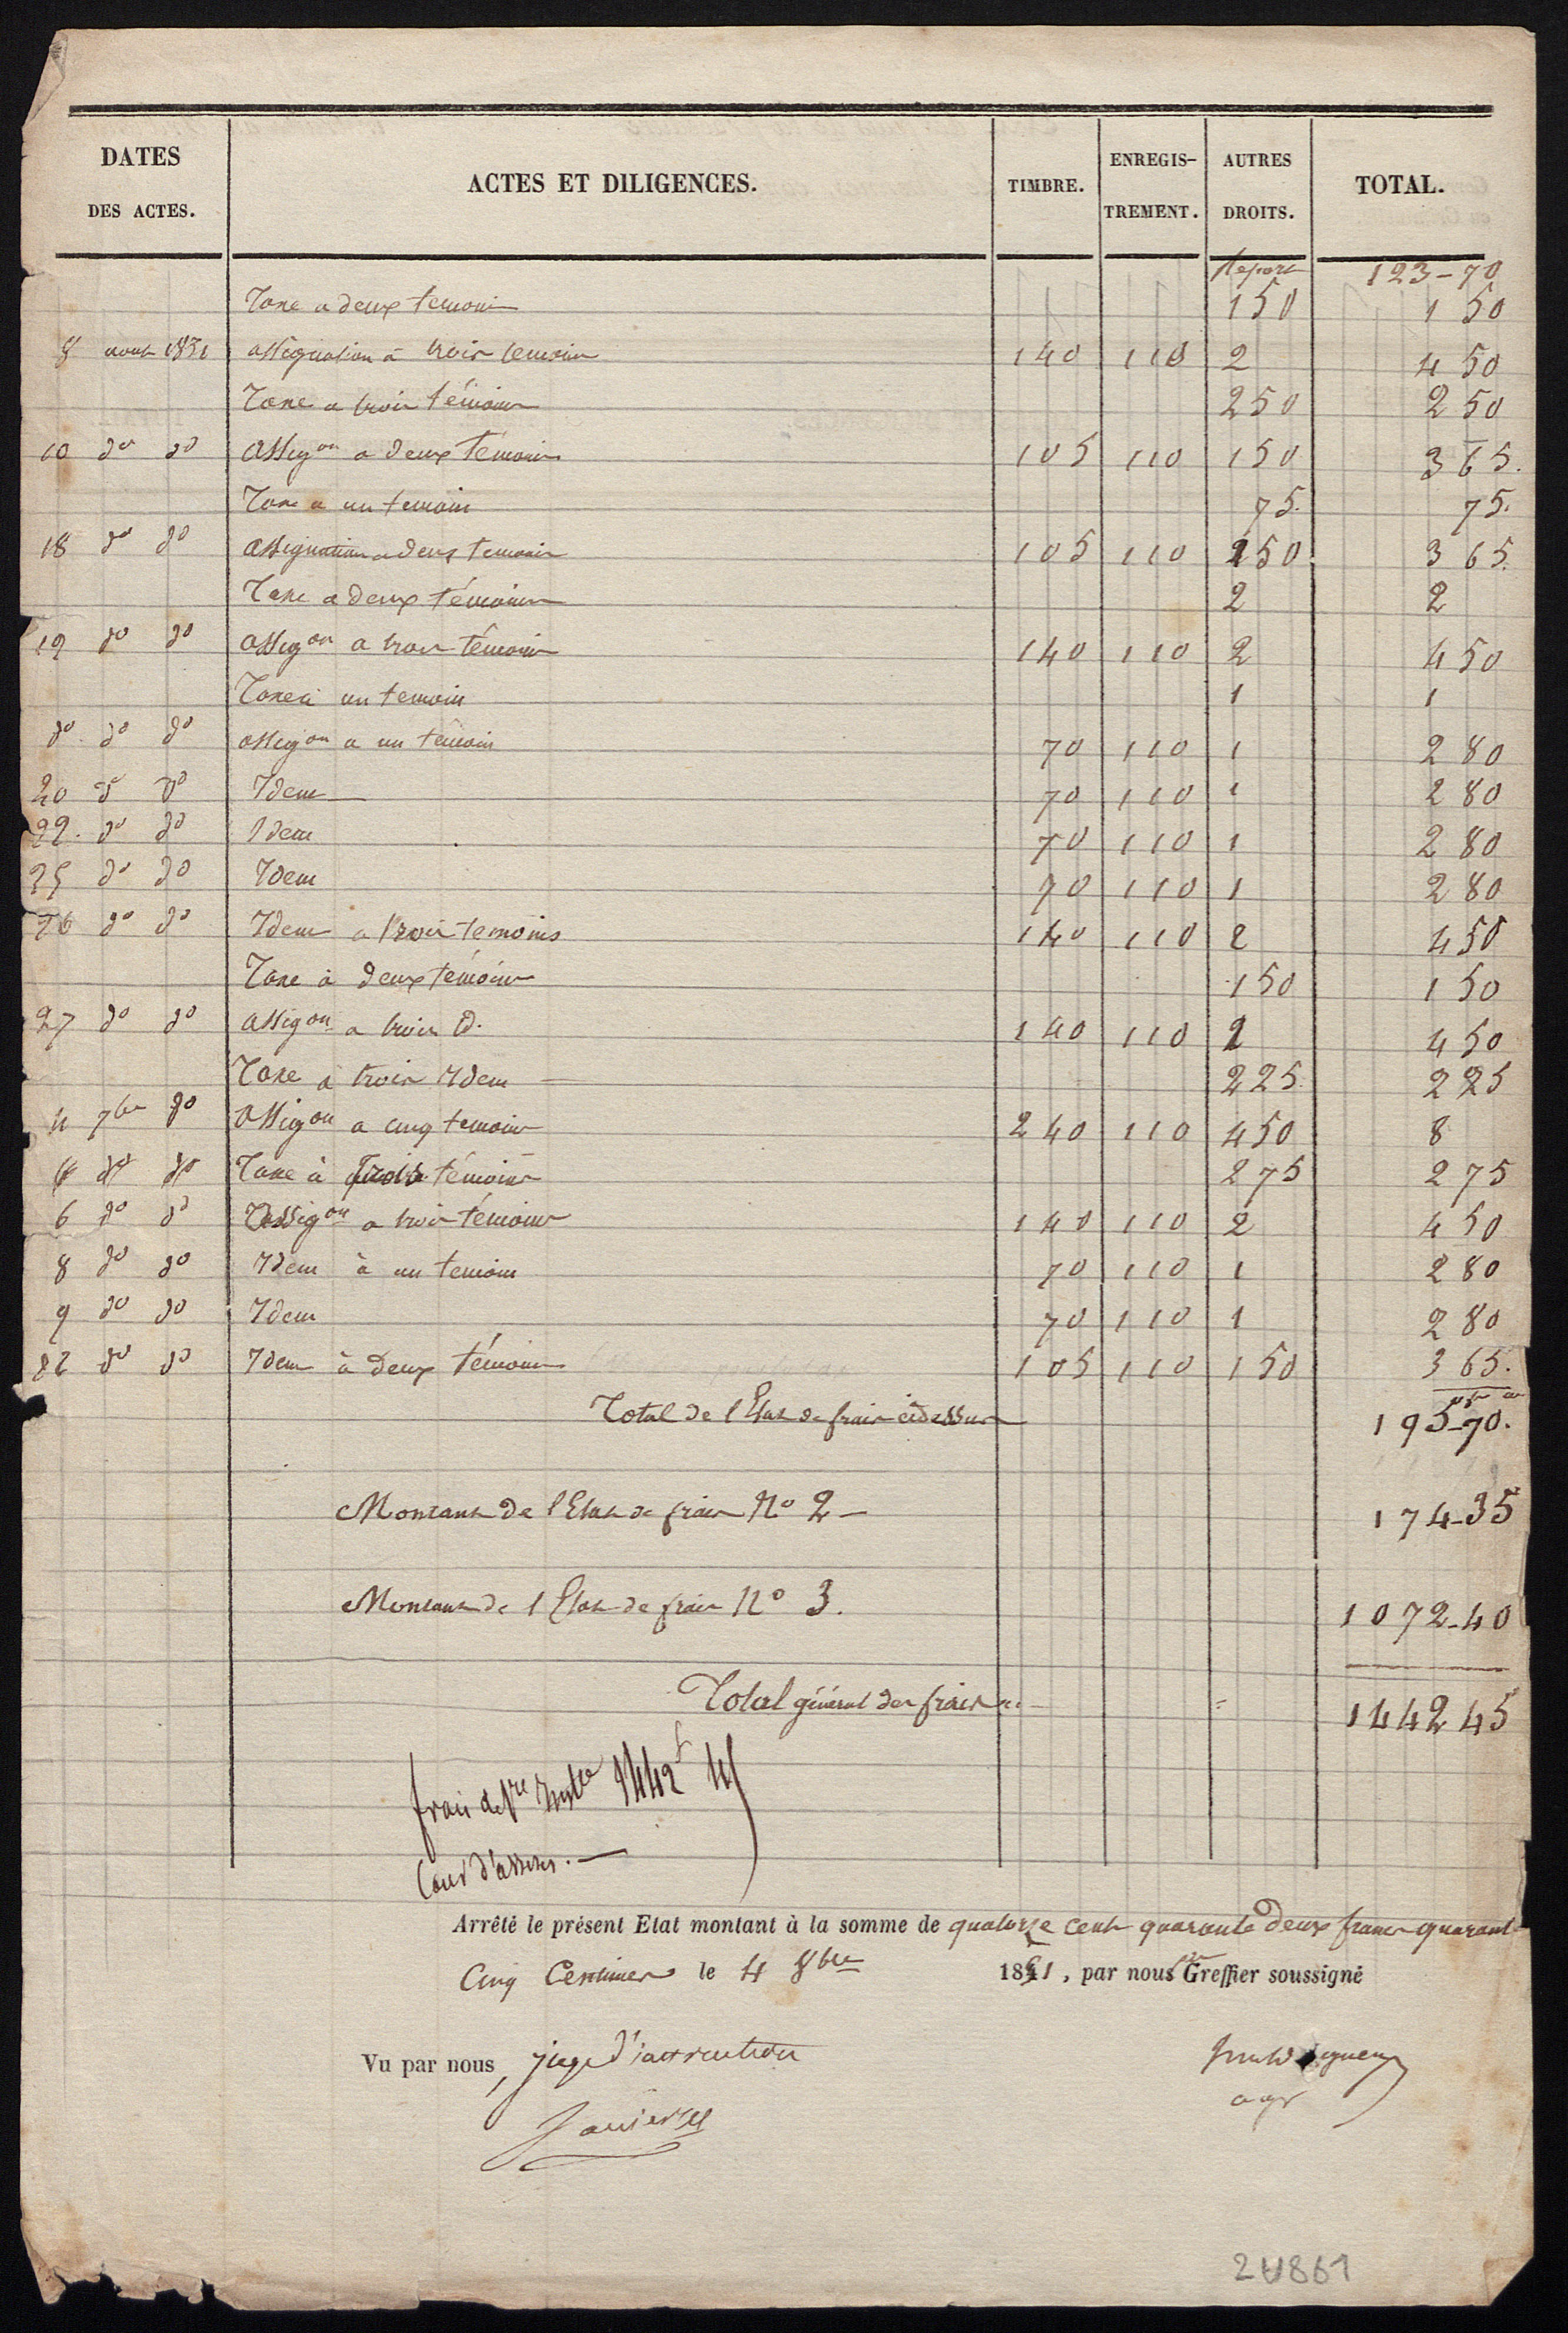 DATES DES ACTES. ACTES ET DILIGENCES. TIMBRE. ENREGIS-TREMENT. AUTRES DROITS. TOTAL.
Report 123-70
Taxe a deux temoin 150 1 50
8 aout 1831 assignation à trois temoin 140 110 2 4 50
Taxe a trois témoins 250 2 50
10 do do Assigon a deux témoins 105 110 150 3 65.
Taxe a un temoin 75. 75.
18 do do Assignation a deux temoin 105 110 150 3 65.
Taxe a deux témoins 2 2
19 do do assigon a trois témoin 140 110 2 4 50
Taxe à un temoin 1 1
do do do assigon a un témoin 70 110 1 2 80
20 do do Idem 70 110 1 2 80
22. do do Idem 70 110 1 2 80
25 do do Idem 70 110 1 2 80
26 do do Idem a trois temoins 140 110 2 4 50
Taxe à deux témoins 150 1 50
27 do do Assigon a trois d. 140 110 2 4 50
Taxe à trois Idem 225 2 25
4 7bre do Assigon a cinq temoins 240 110 450 8
do do Taxe à trois témoins 275 2 75
6 do do Assigon a trois témoins 140 110 2 4 50
8 do do Idem à un temoin 70 110 1 2 80
9 do do Idem 70 110 1 2 80
22 do do Idem à deux témoins 105 110 150 3 65.
Total de l'Etat de frais cidessus 195-70.
Montant de l'Etat de frais No 2 174-35
Montant de l'Etat de frais No 3. 1072-40
Total général des frais 1442 45
frais de 1442f 45
Cour d'assises.
Arrêté le présent Etat montant à la somme de quatorze cent quarante deux francs quarante
Cinq Centimes le 4 8bre 1831, par nous Greffier soussigné
Vu par nous, juge d'instruction
2U861